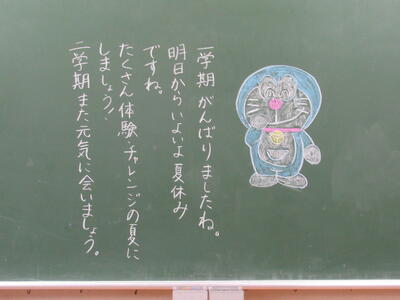 一学期がんばりましたね。
明日からいよいよ夏休み
ですね。
たくさん体験・チャレンジの夏に
しましょう！
二学期また元気に会いましょう。